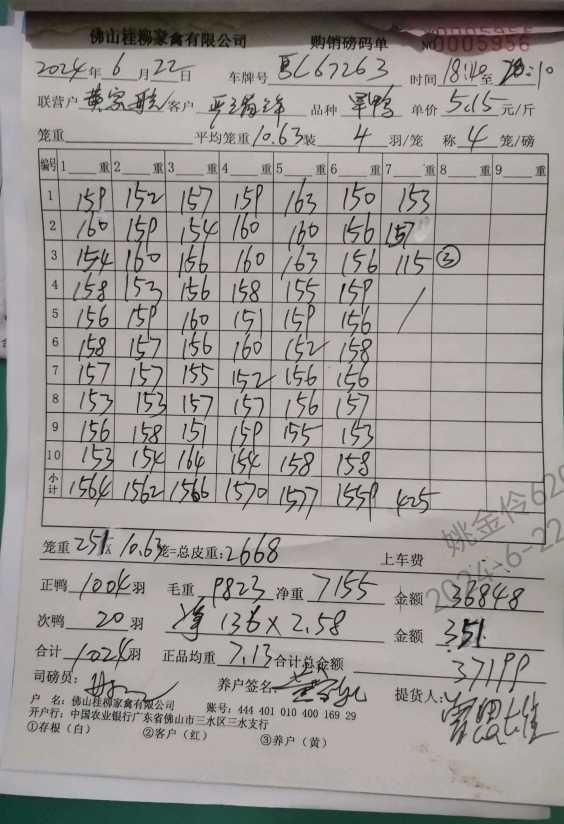 佛山桂柳家禽有限公司 购销磅码单 NO 0005956
2024年 6月 22日 车牌号 67263 时间 18:40至
联营户 黄家 客户 品种 旱鸭 单价 5.15 元/斤
笼重 平均笼重 10.63 装 4 羽/笼 称 4 笼/磅
编号 1 重 2 重 3 重 4 重 5 重 6 重 7 重 8 重 9 重
1 159 152 157 159 163 150 153
2 160 159 154 160 160 156 157
3 154 160 156 160 163 156 115 ③
4 158 153 156 158 155 159 /
5 156 159 160 151 159 156
6 158 157 156 160 152 158
7 157 157 155 152 156 156
8 153 153 157 157 156 157
9 156 158 151 159 155 153
10 153 154 164 154 158 158
小计 1564 1562 1566 1570 1577 1559 425
笼重 251 X 10.63 笼=总皮重: 2668 上车费
正鸭 1004 羽 毛重 9823 净重 7155 金额 36848
次鸭 20 羽 净 136 X 2.58 金额 351
合计 1024 羽 正品均重 7.13 合计总金额 37199
司磅员: 养户签名 提货人:
户 名: 佛山桂柳家禽有限公司 账号: 444 401 010 400 169 29
开户行: 中国农业银行广东省佛山市三水区三水支行
①存根（白） ②客户（红） ③养户（黄）
姚金伶629
2024-6-22